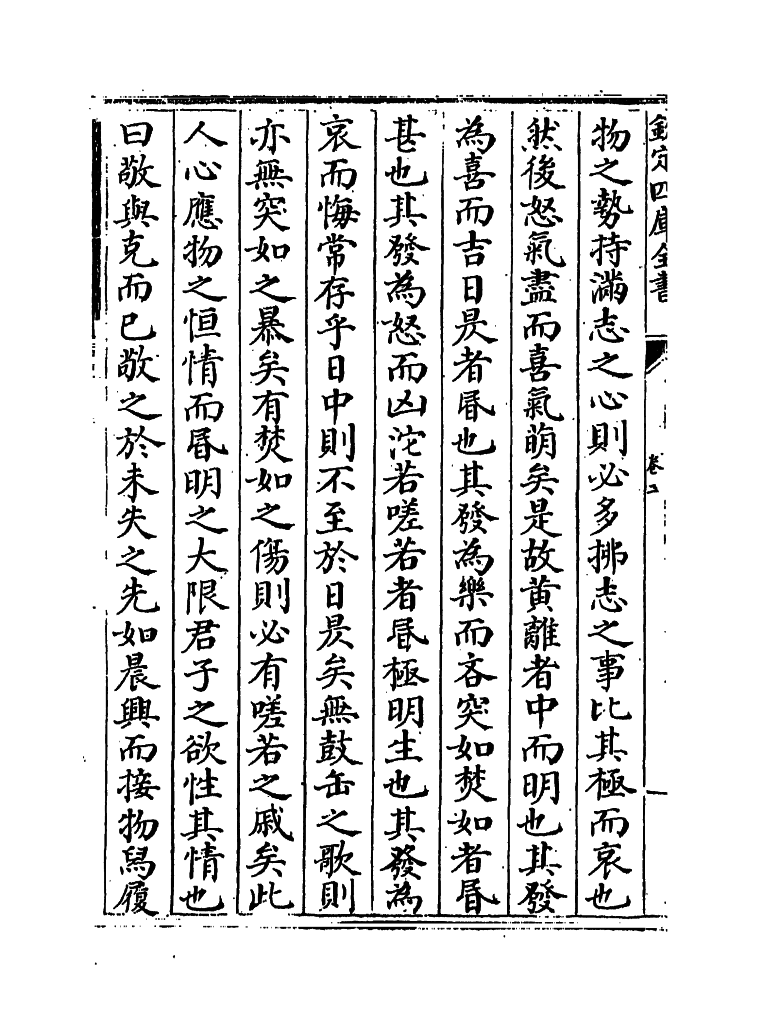 欽定四庫全書
卷二
物之勢持滿志之心則必多拂志之事比其極而哀也
然後怒氣盡而喜氣萌矣是故黄離者中而明也其發
為喜而吉日昃者昬也其發為樂而吝突如焚如者昬
甚也其發為怒而凶沱若嗟若者昬極明生也其發為
哀而悔常存乎日中則不至於日昃矣無鼓缶之歌則
亦無突如之暴矣有焚如之傷則必有嗟若之戚矣此
人心應物之恒情而昬明之大限君子之欲性其情也
曰敬與克而已敬之於未失之先如晨興而接物舄履